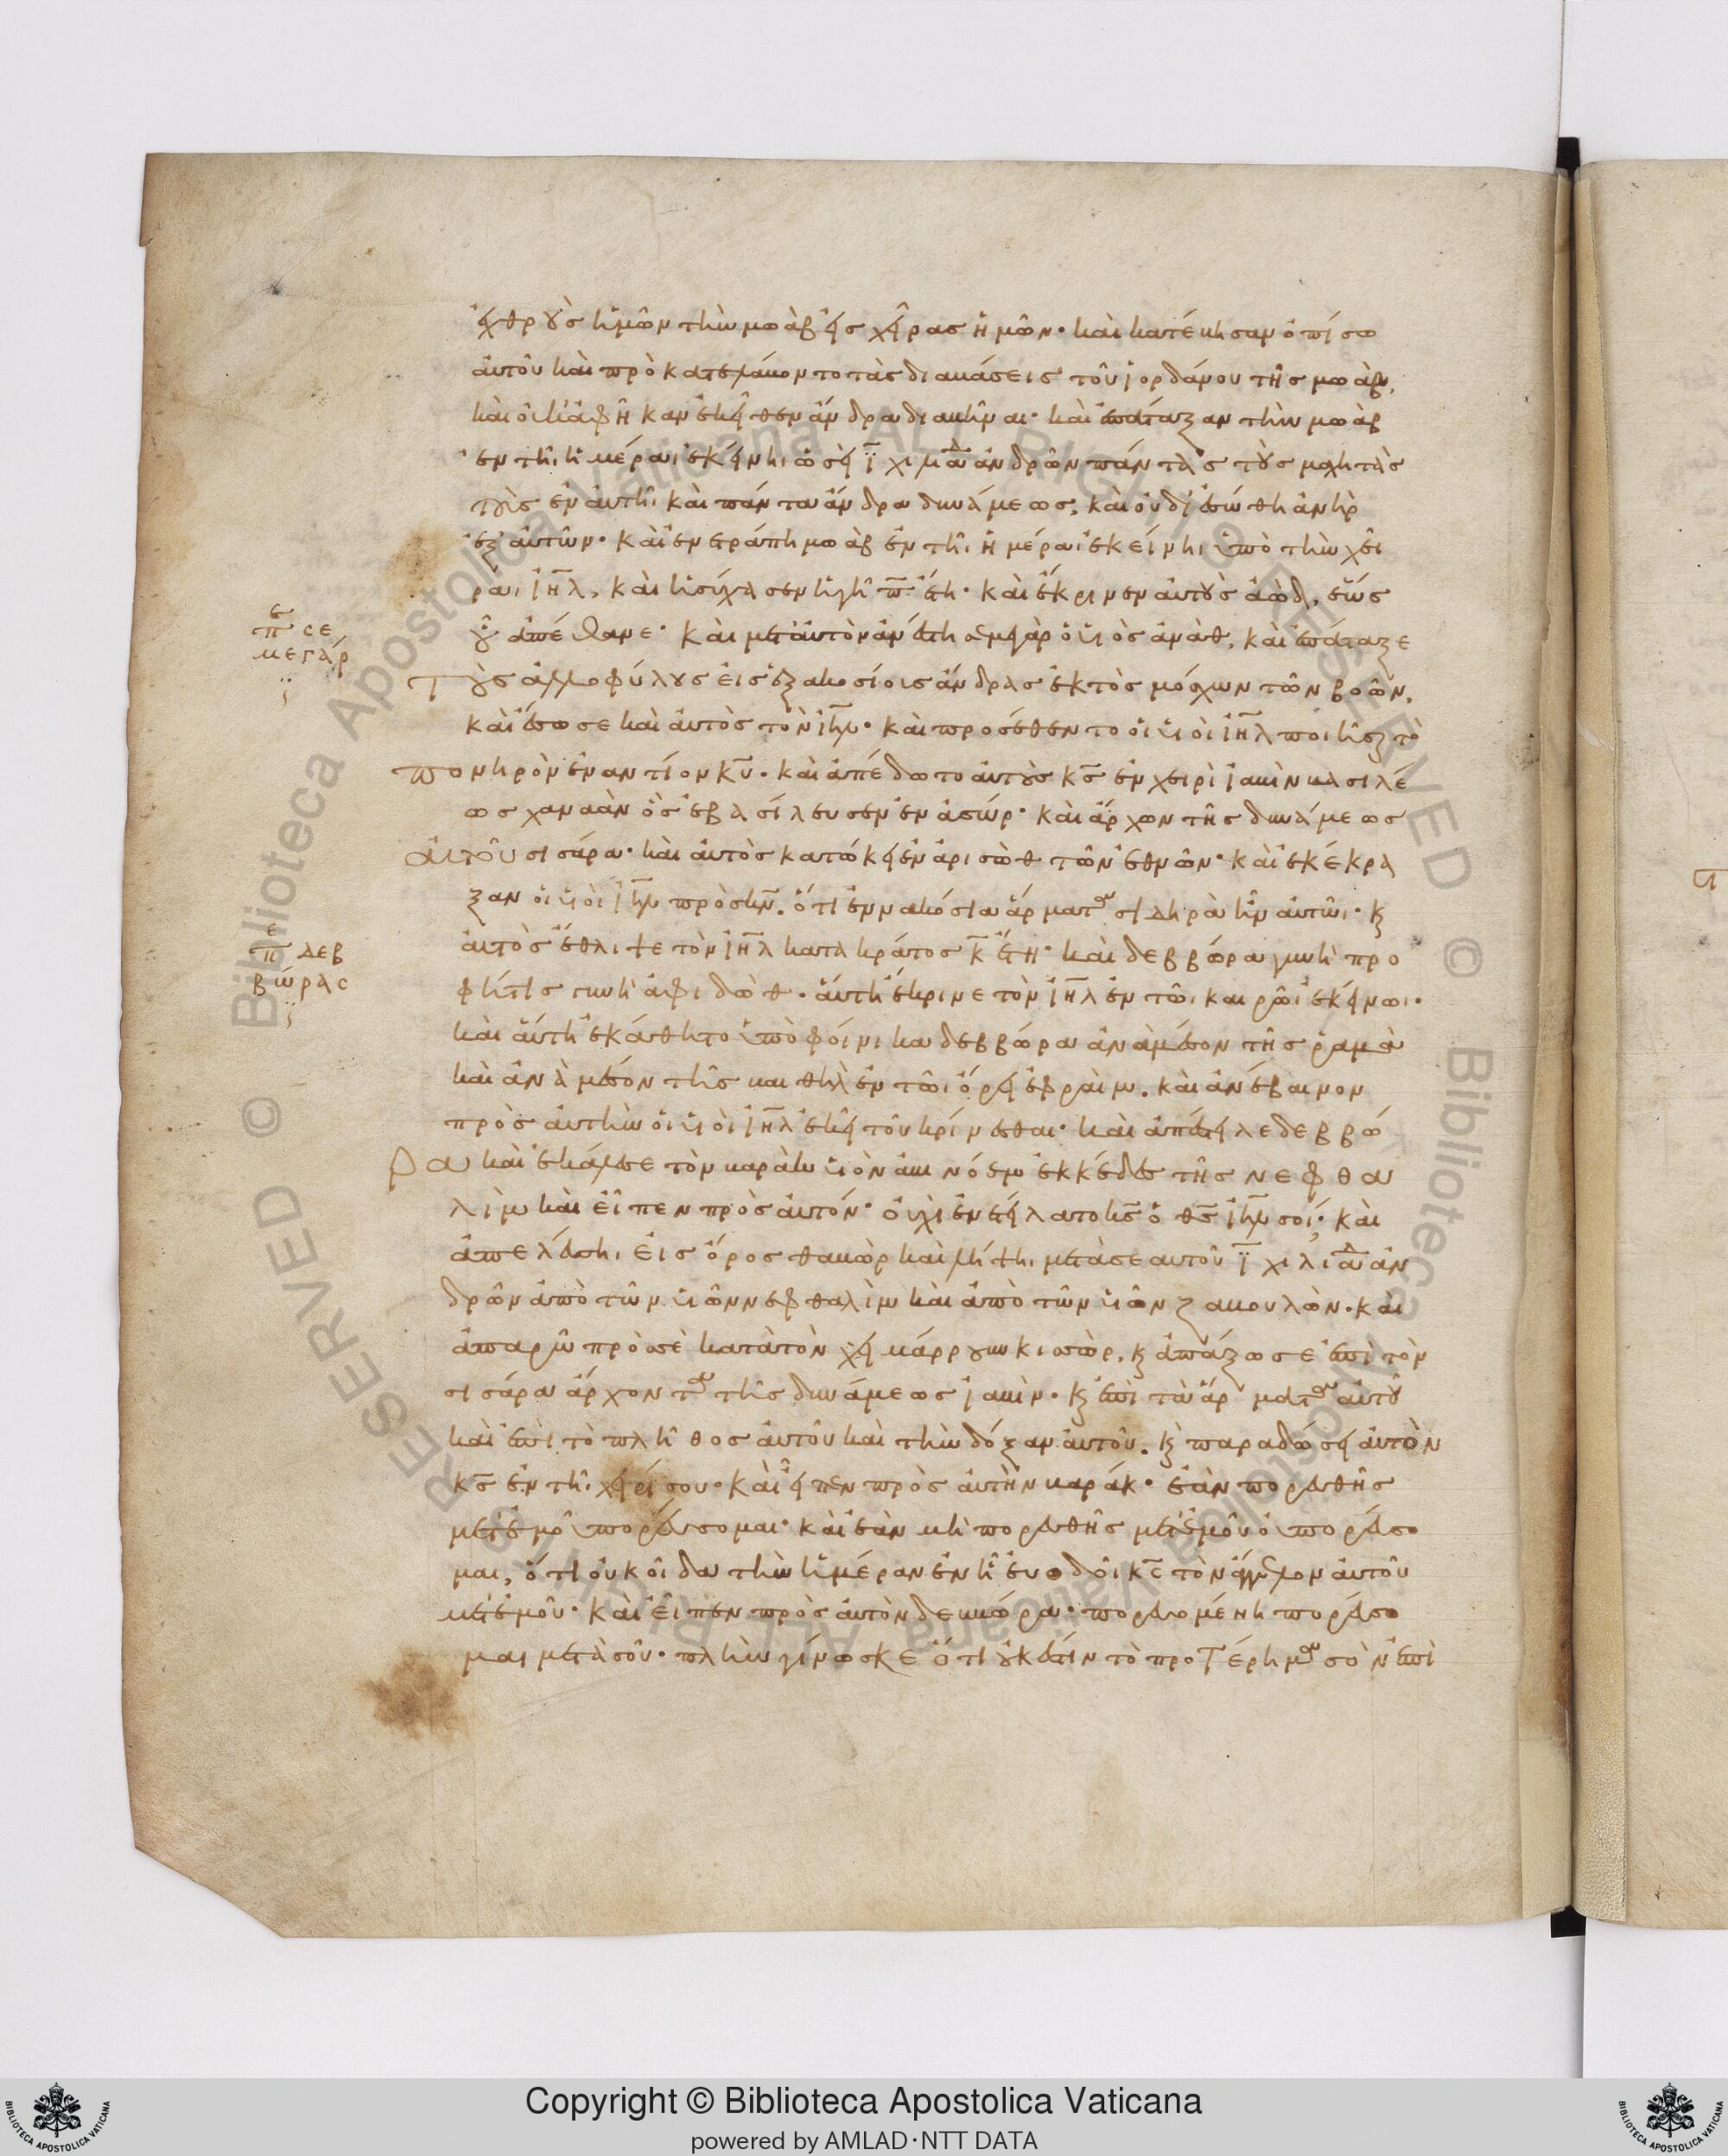 ἐχθροὺς ἡμῶν τὴν μωὰβ εἰς χεῖρας ἡμῶν· καὶ κατέβησαν ὀπίσω
αὐτοῦ καὶ προκατελάβοντο τὰς διαβάσεις τοῦ ἰορδάνου τῆς μωάβ,
καὶ οὐκ ἀφῆκαν ἐκεῖθεν ἄνδρα διαβῆναι· καὶ ἐπάταξαν τὴν μωὰβ
ἐν τῆι ἡμέραι ἐκείνηι ὡσεὶ ϊ χιλιάδ ἀνδρῶν πάντας τοὺς μαχητὰς
τοὺς ἐν αὐτῆι καὶ πάντα ἄνδρα δυνάμεως, καὶ οὐ διεσώθη ἀνὴρ
ἐξ αὐτῶν· καὶ ἐνετράπη μωὰβ ἐν τῆι ἡμέραι ἐκείνηι ὑπὸ τὴν χεῖ
ρα ιηλ, καὶ ἡσύχασεν ἡ γῆ π ἔτη· καὶ ἔκρινεν αὐτοὺς ἀὼδ, ἕως
οὗ ἀπέθανε· καὶ μετ' αὐτὸν ἀνέστη σεμεγὰρ ὁ υἱὸς ἀνὰθ, καὶ ἐπάταξε
τοὺς ἀλλοφύλους εἰς ἑξακοσίοις ἄνδρας ἐκτὸς μόσχων τῶν βοῶν,
καὶ ἔσωσε καὶ αὐτὸς τὸν ιηλ· καὶ προσέθεντο οἱ υἱοὶ ιηλ ποιῆσαι τὸ
πονηρὸν ἐναντίον κυ· καὶ ἀπέδοτο αὐτοὺς κς ἐν χειρὶ ἰαβὶν βασιλέ
ως χαναὰν ὃς ἐβασίλευσεν ἐν ἀσώρ· καὶ ἄρχων τῆς δυνάμεως
αὐτοῦ σισάρα· καὶ αὐτὸς κατώκει ἐν ἀρισὼθ τῶν ἐθνῶν· καὶ ἐκέκρα
ξαν οἱ υἱοὶ ιηλ πρὸς κν. ὅτι ἐννακόσια ἅρματα σιδηρᾶ ἦν αὐτῶι· κ
αὐτὸς ἔθλιψε τὸν ιηλ κατὰ κράτος κ ἔτη· καὶ δεββώρα γυνὴ προ
φῆτις γυνὴ ἀφιδώθ. αὕτη ἔκρινε τὸν ιηλ ἐν τῶι καιρῶι ἐκείνωι.
καὶ αὕτη ἐκάθητο ὑπὸ φοίνικα δεββώρα ἀνὰ μέσον τῆς ῥαμὰ
καὶ ἀνὰ μέσον τῆς βαιθὴλ ἐν τῶι ὄρει ἐφραίμ. καὶ ἀνέβαινον
πρὸς αὐτὴν οἱ υἱοὶ ιηλ ἐκεῖ τοῦ κρίνεσθαι· καὶ ἀπέστειλε δεββώ
ρα καὶ ἐκάλεσε τὸν βαρὰκ υἱὸν ἀβινόεμ ἐκ κέδες τῆς νεφθα
λὶμ καὶ εἶπεν πρὸς αὐτόν· οὐχὶ ἐντείλατο κς ὁ θς ιηλ σοί; καὶ
ἀπελεύση εἰς ὄρος θαβὼρ καὶ λήψη μετὰ σεαυτοῦ ϊ χιλιάδ ἀν
δρῶν ἀπὸ τῶν υἱῶν νεφθαλὶμ καὶ ἀπὸ τῶν υἱῶν ζαβουλών. καὶ
ἀπαρῶ πρὸς σὲ κατὰ τὸν χειμάρρουν κισσὼρ, κ ἀπάξω σε ἐπὶ τὸν
σισάρα ἄρχοντα τῆς δυνάμεως ἰαβίν. κ ἐπὶ τὰ ἅρματα αὐτοῦ
καὶ ἐπὶ τὸ πλῆθος αὐτοῦ καὶ τὴν δόξαν αὐτοῦ. κ παραδώσει αὐτὸν
κς ἐν τῆι χειρί σου· καὶ εἶπεν πρὸς αὐτὴν βαράκ· ἐὰν πορευθῆς
μετ' ἐμοῦ πορεύσομαι· καὶ ἐὰν μὴ πορευθῆς μετ' ἐμοῦ οὐ πορεύσο
μαι, ὅτι οὐκ οἶδα τὴν ἡμέραν ἐν ἧ εὐοδοῖ κς τὸν ἄγγελον αὐτοῦ
μετ' ἐμοῦ· καὶ εἶπεν πρὸς αὐτὸν δεββώρα· πορευομένη πορεύσο
μαι μετὰ σοῦ· πλὴν γίνωσκε ὅτι οὐκ ἔστιν τὸ προτέρημα σὸν ἐπὶ
ε
π σε
μεγάρ
ε
π δεβ
βώρας
Copyright © Biblioteca Apostolica Vaticana
powered by AMLAD·NTT DATA